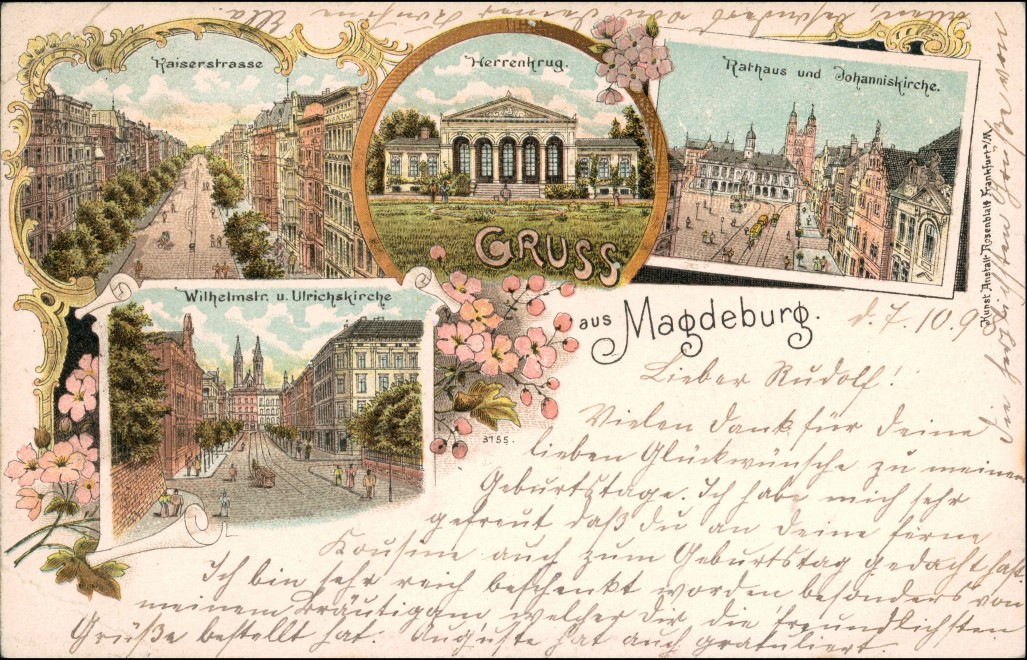 Kaiserstrasse
Herrenkrug.
Rathaus und Johanniskirche.
GRUSS
Wilhelmstr. u. Ulrichskirche
aus Magdeburg.
3755.
Kunst Anstalt Rosenblatt Frankfurt a/M.
d. 7.10.9
Lieber Rudolf!
Vielen Dank für deine
lieben Glückwünsche zu meinem
Geburtstage. Ich habe mich sehr
gefreut daß du an deine ferne
Kousine auch zum Geburtstag gedacht hast.
Ich bin sehr reich beschenkt worden besonders von
meinem Bräutigam welcher dir die freundlichsten
Grüße bestellt hat. Auguste hat auch gratuliert.
von
allen, besonders von deiner Kousine
Ella.